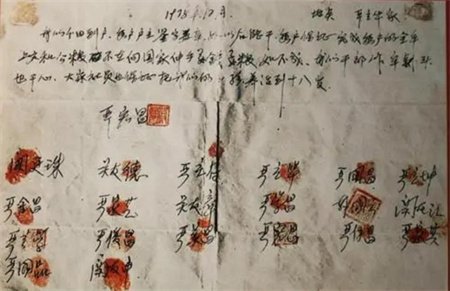 1978.12月 地点 严立华家
我们分田到户,每户户主签字盖章,如以后能干,每户保证完成每户的全年
上交和公粮,不在向国家伸手要钱要粮,如不成,我们干部作牢刹头
也干心,大家社员也保证把我们的小孩养活到十八岁。
严宏昌
关廷珠 关友德 严立华 严国昌 严立坤
严金昌 严家芝 关友章 严学昌 关友江
严俊昌 严美昌 严付昌 严家其
严国品 关友申